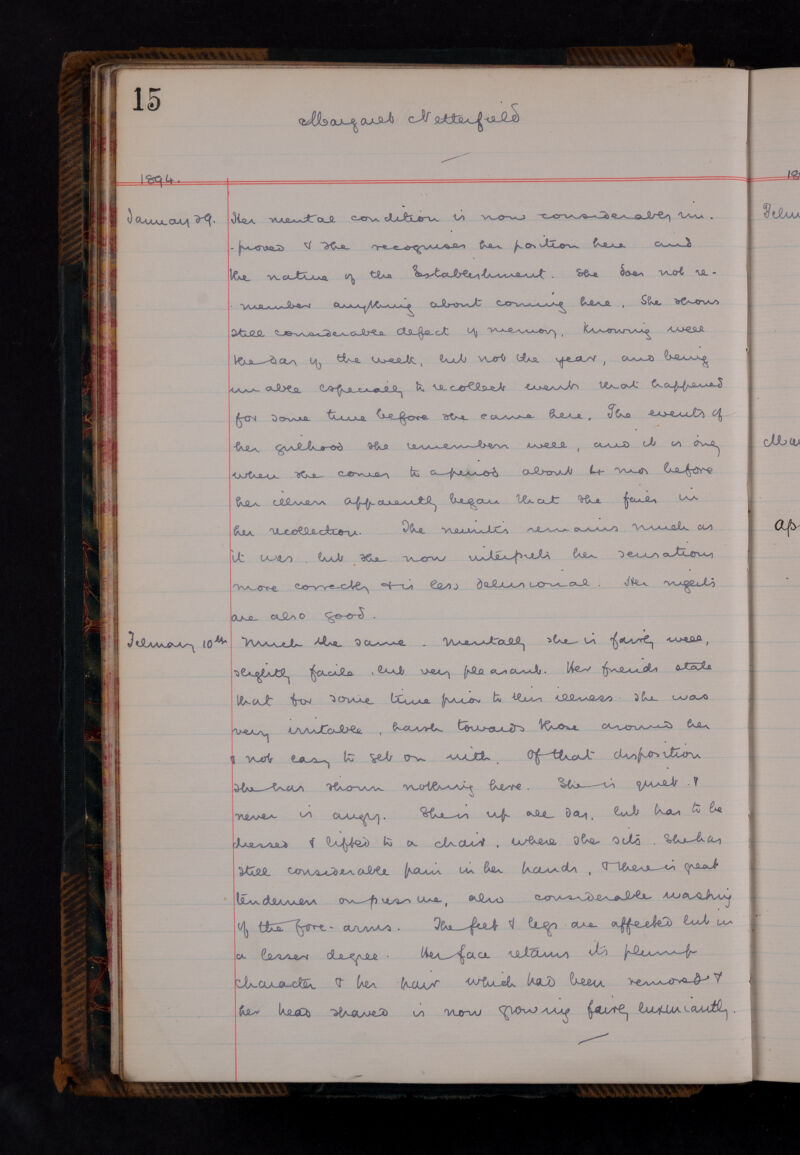 15
Margaret Netterfield
1894.
January 29. Her mental condition is now considerably im-
-proved & she recognises her position here and
the nature of the Establishment. She does not re-
-member anything about coming here. She shows
still considerable defect of memory, knowing well
the day of the week, but not the year, and being
unable especially to recollect events that happened
for some time before she came here. The events of
her girlhood she remembers well, and it is only
when she comes to a period about 4 mos before
her illness apparently began that she fails in
her recollection. The neuritis remains much as
it was but she now interprets her sensations
more correctly & is less delusional. Her nights
are also good.
February 10th Much the same. Mentally she is fairly well,
slightly facile, but very pleasant. Her friends state
that for some time prior to this illness she was
very irritable, harsh towards those around her
& not easy to get on with. Of that disposition
she has shown nothing here. She is quiet &
never is angry. She is up all day, but has to be
dressed & lifted to a chair, where she sits. She has
still considerable pain in her hands, & there is great
tenderness on pressure, also considerable wasting
of the fore-arms. The feet & legs are affected but in
a lesser degree. Her face retains its plump
character & her hair which had been removed &
her head shaved is now growing fairly luxuriantly.
18
Febru
Ma
ap